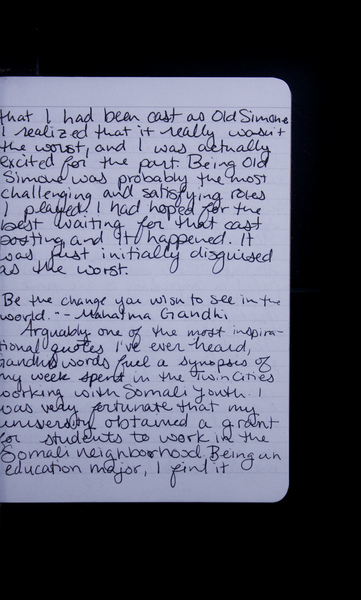 that I had been cast as Old Simone
I realized that it really wasn't
the worst, and I was actually
excited for the part. Being Old
Simone was probably the most
challenging and satisfying roles
I played. I had hoped for the
best waiting for that cast
posting, and it happened. It
was just initially disguised
as the worst.
Be the change you wish to see in the
world. -- Mahatma Gandhi
Arguably one of the most inspira-
tional quotes I've ever heard,
Gandhi's words fuel a synopsis of
my week spent in the Twin Cities
working with Somali Youth. I
was very fortunate that my
university obtained a grant
for students to work in the
Somali neighborhood. Being an
education major, I find it